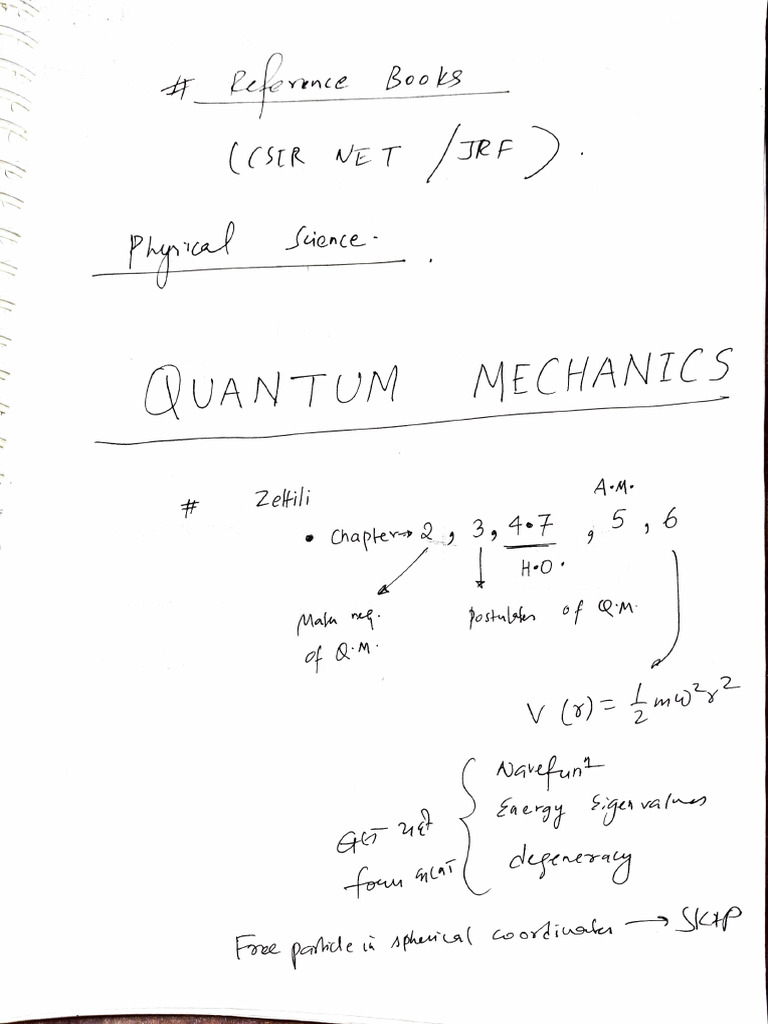 # Reference Books
(CSIR NET / JRF).
Physical Science.
QUANTUM MECHANICS
# Zettili
A.M.
• Chapter → 2, 3, 4.7, 5, 6
H.O.
Math req. of Q.M.
Postulates of Q.M.
V (r) = 1/2 mω²r²
Wavefunⁿ
Energy Eigenvalues
degeneracy
Free particle in spherical coordinates → SKIP